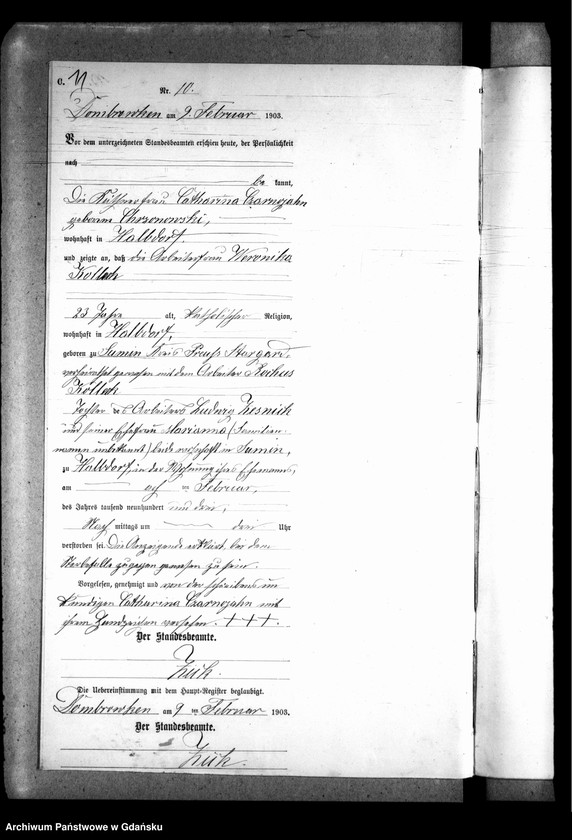 C. 11
Nr. 10.
Dombrowken am 9. Februar 1903.
Vor dem unterzeichneten Standesbeamten erschien heute, der Persönlichkeit
nach
be kannt,
Die Käthnerfrau Catharina Czarnojahn
geborene Chrzonowski,
wohnhaft in Halbdorf.
und zeigte an, daß die Arbeiterfrau Veronika
Kolleck
23 Jahre alt, katholischer Religion,
wohnhaft in Halbdorf,
geboren zu Sumin Kreis Preuß Stargard,
verheirathet gewesen mit dem Arbeiter Rochus
Kolleck
Tochter des Arbeiters Ludwig
und seiner Ehefrau Marianna (Familien-
namen unbekannt) beide wohnhaft in Sumin,
zu Halbdorf, in der Wohnung ihres Ehemannes,
am acht ten Februar,
des Jahres tausend neunhundert und drei,
Nach mittags um drei Uhr
verstorben sei. Die Anzeigende erklärt, bei dem
Sterbefalle zugegen gewesen zu sein.
Vorgelesen, genehmigt und von der Schreibens un-
kundigen Catharina Czarnojahn mit
ihrem Handzeichen versehen. + + +.
Der Standesbeamte.
Zük.
Die Uebereinstimmung mit dem Haupt-Register beglaubigt.
Dombrowken am 9 ten Februar 1903.
Der Standesbeamte.
Zük.
Archiwum Państwowe w Gdańsku